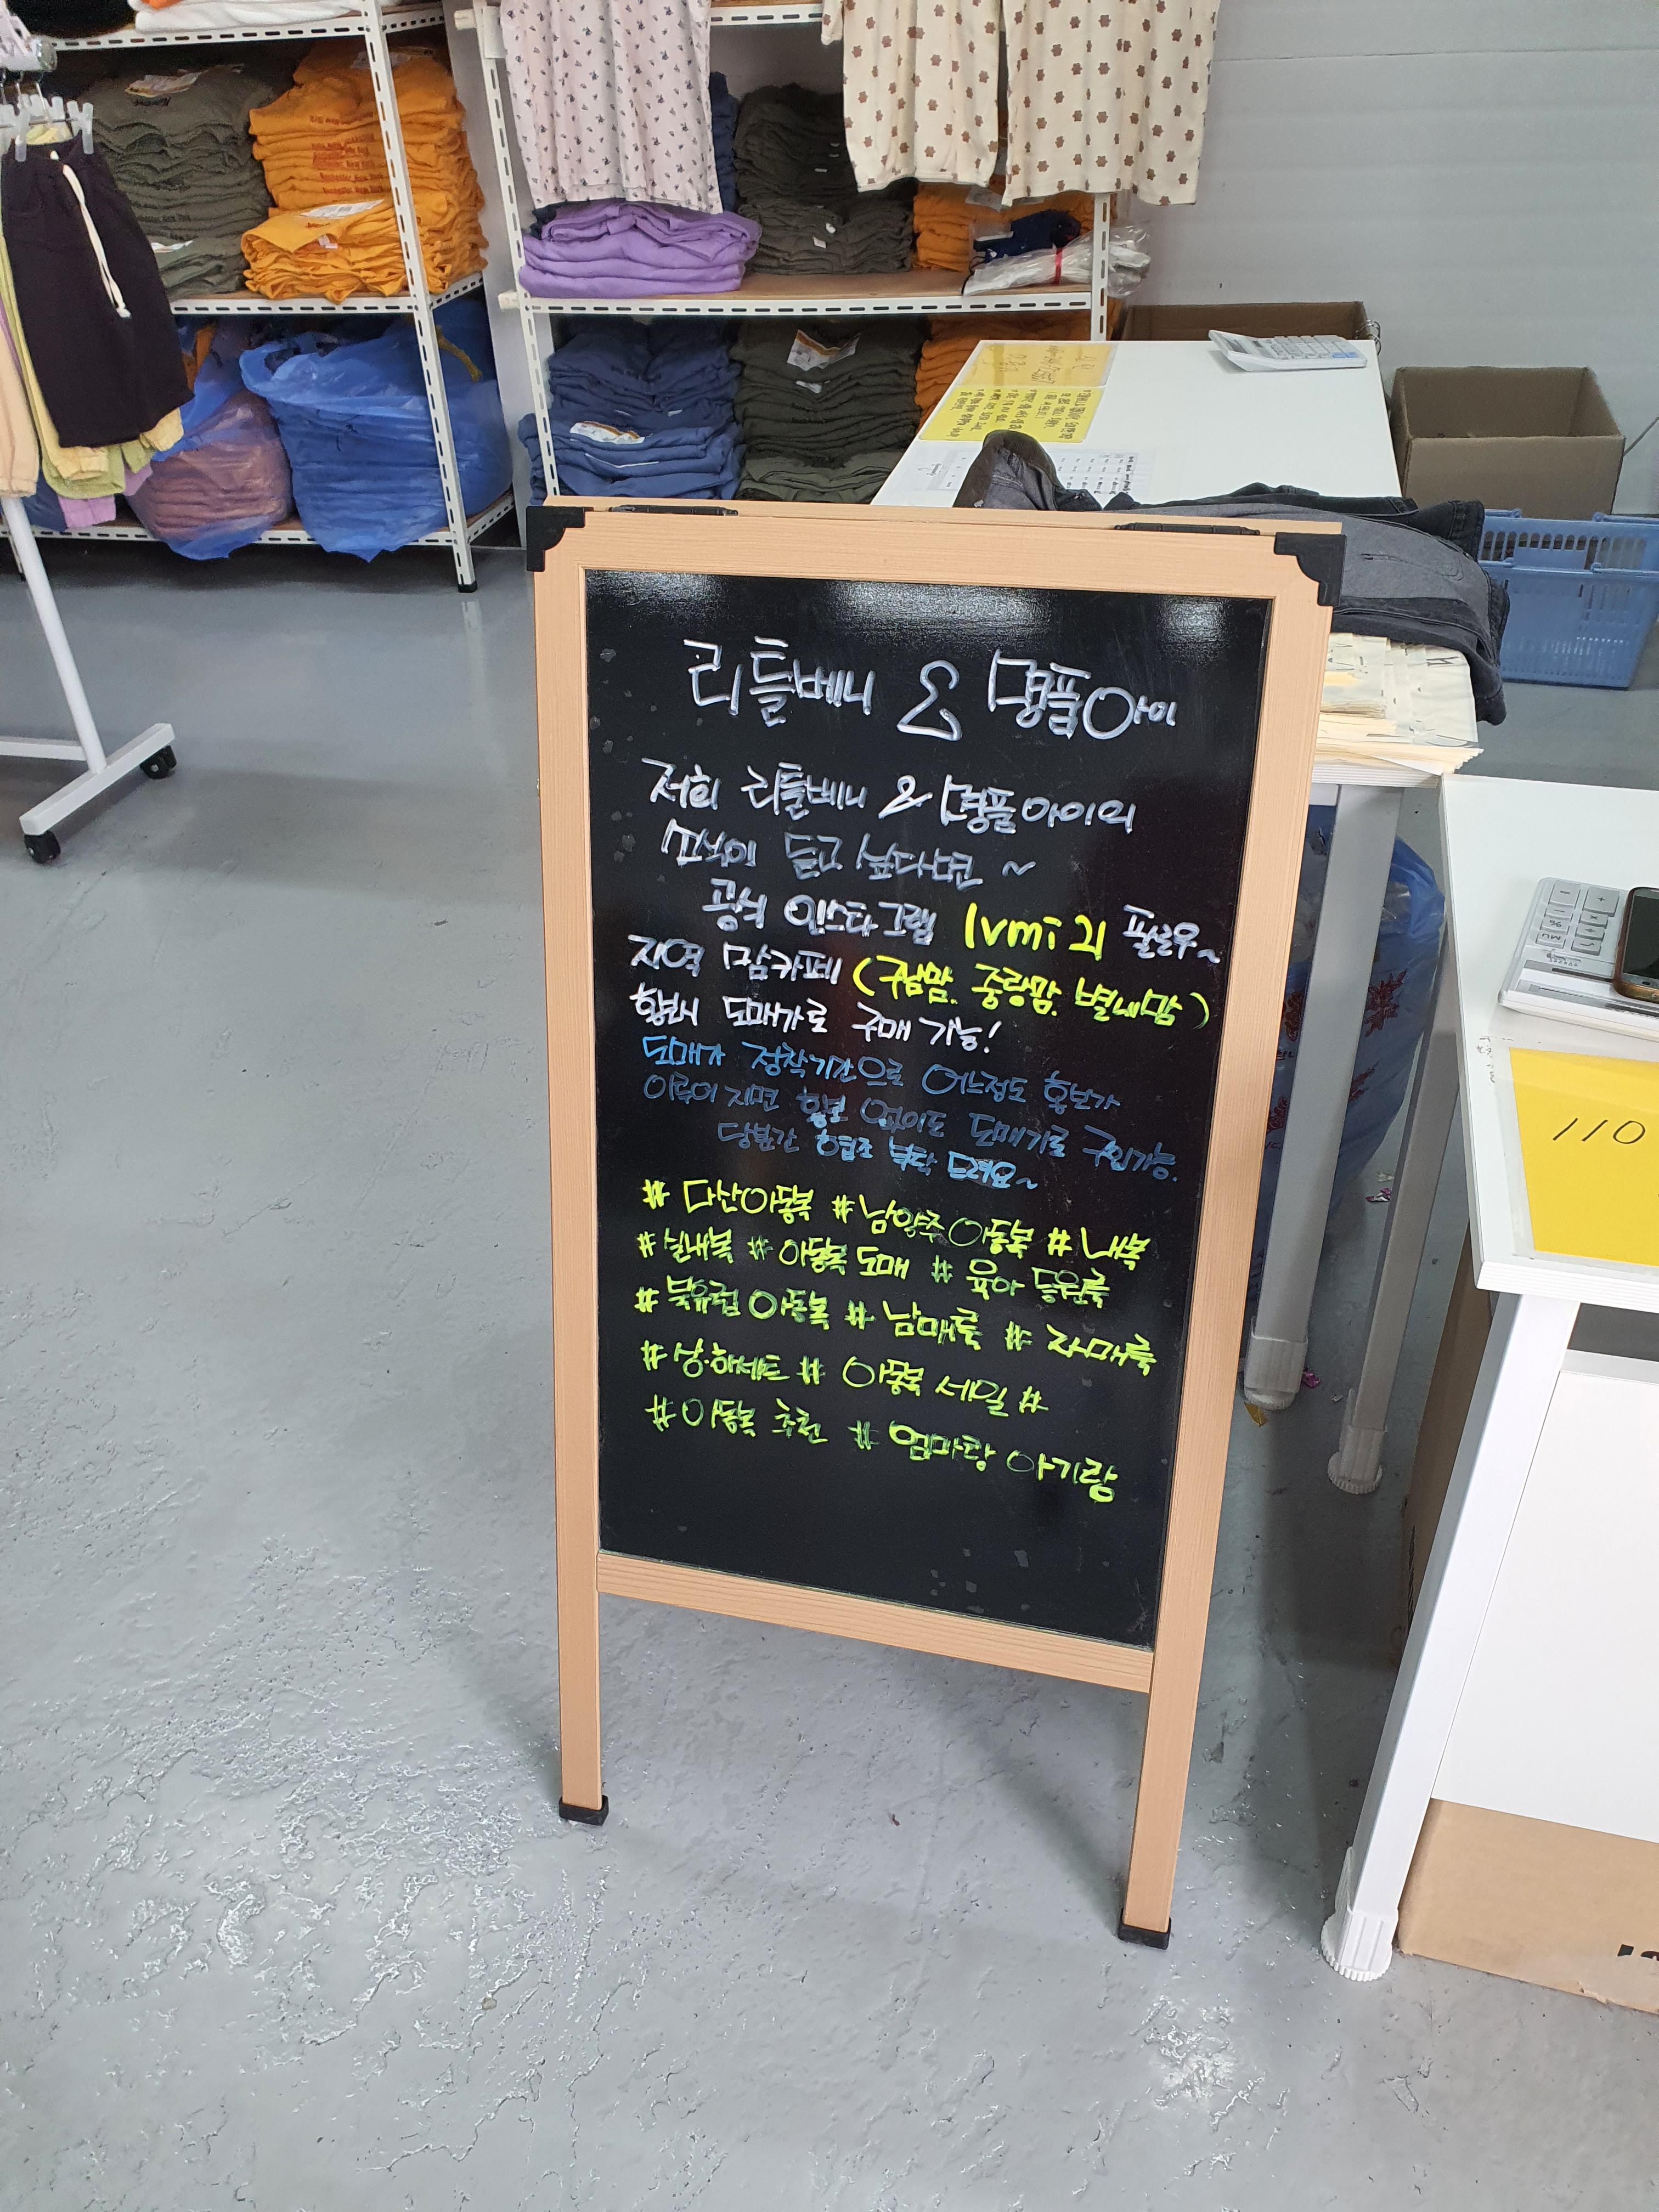 리틀베니 & 명품아이
저희 리틀베니 & 명품아이의
소식이 듣고 싶다면 ~
공식 인스타그램 lvmi 21 팔로우~
지역 맘카페 (구남맘. 중랑맘. 별내맘)
홍보시 도매가로 구매 가능!
도매가 정착기간으로 어느정도 홍보가
이루어 지면 홍보 없이도 도매가로 구입가능.
당분간 협조 부탁 드려요~
# 다산아동복 # 남양주아동복 # 내복
# 실내복 # 아동복 도매 # 육아 등원룩
# 북유럽 아동복 # 남매룩 # 자매룩
# 상·하세트 # 아동복 세일 #
# 아동복 추천 # 엄마랑 아기랑
110